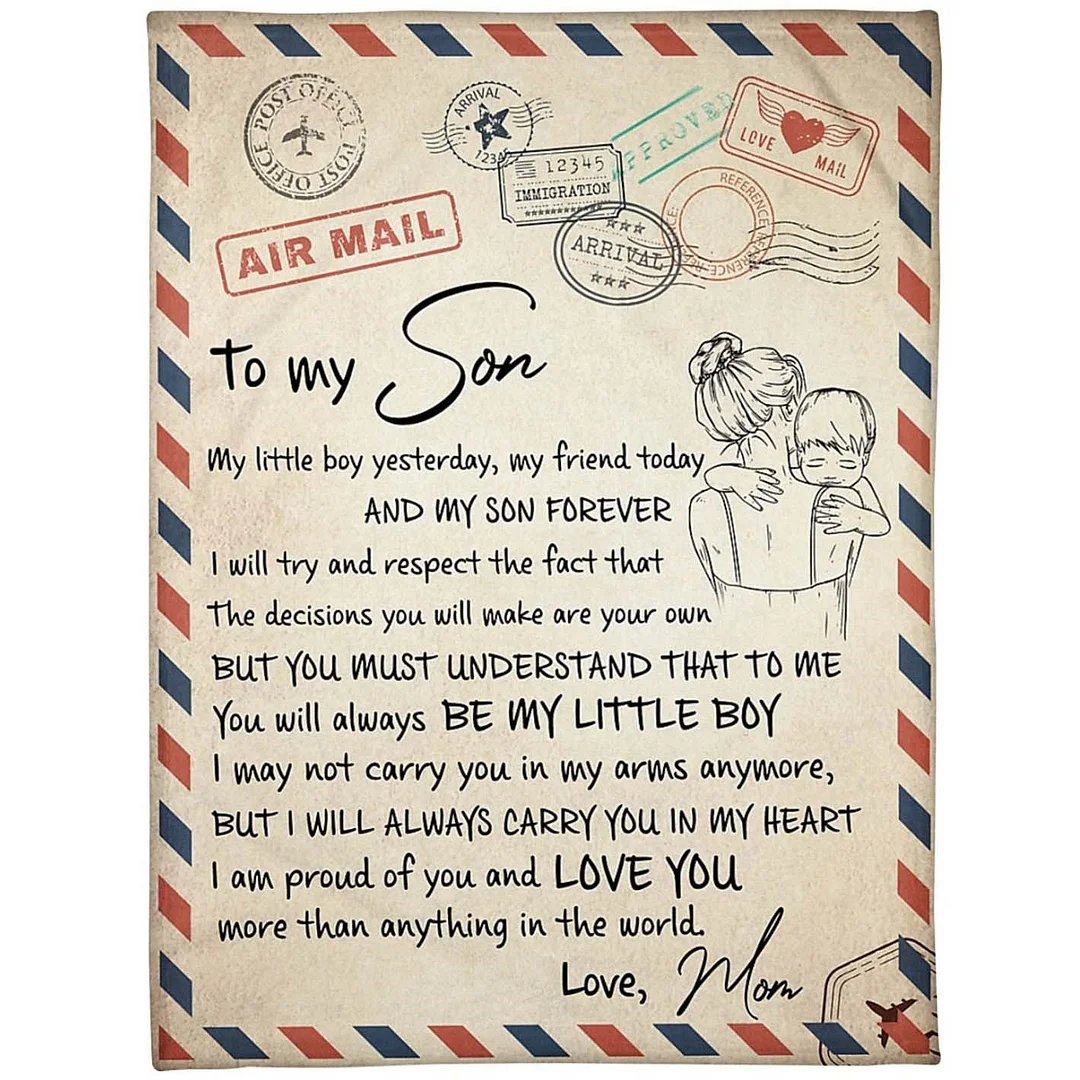 POST OFFICE POST OFFICE
ARRIVAL
12345
12345
IMMIGRATION
APPROVED
LOVE MAIL
REFERENCE
ARRIVAL
AIR MAIL
To my Son
My little boy yesterday, my friend today
AND MY SON FOREVER
I will try and respect the fact that
The decisions you will make are your own
BUT YOU MUST UNDERSTAND THAT TO ME
You will always BE MY LITTLE BOY
I may not carry you in my arms anymore,
BUT I WILL ALWAYS CARRY YOU IN MY HEART
I am proud of you and LOVE YOU
more than anything in the world.
Love, Mom